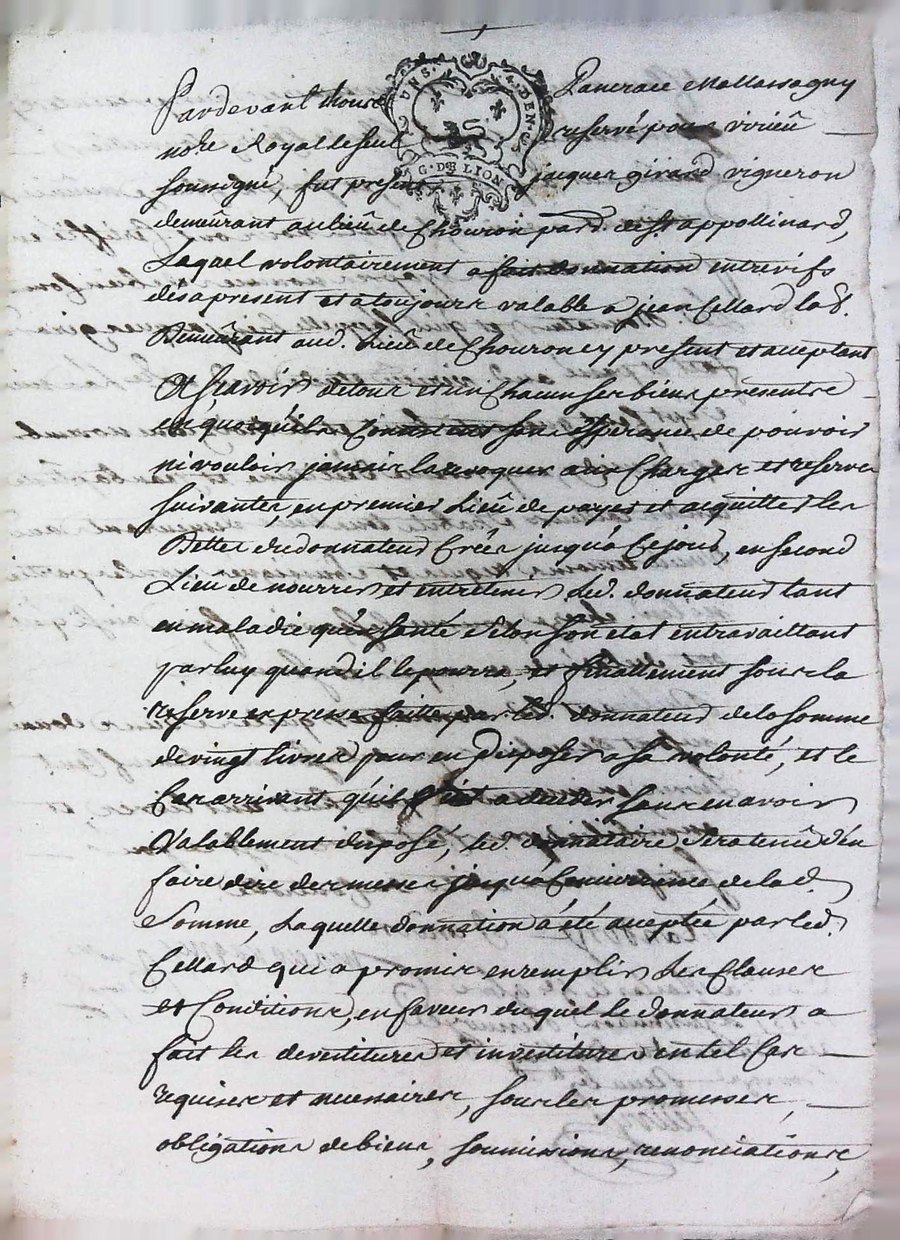 Pardevant Nous Pancrace Mallassagny
no.re Royal le seul reservé pour virieû
UN S. 4. DEN.
G. DE LION
soussigné, fut present jacques girard vigneron
demeûrant au lieû de Chouron par.d de S.t appollinard,
Lequel volontairement a fait donnation entrevifs
des a present et a toujours valable a jean Cellard lab.
Demeûrant aud. Lieû de Chouron cy present et acceptant
Et scavoir de tous et un chacun ses biens presents
en quoy qu'ils Consistent sans Esperance de pouvoir
ni vouloir jamais la revoquer aux Charges et reserves
suivantes, en premier Lieû de payer et acquitter les
Dettes du donnateur Créés jusqu'a Ce jour, en second
Lieu de nourrir et entretenir Led. donnateur tant
en maladie qu'en santé selon son etat en travaillant
par luy quand il le pourra, et finallement sous la
reserve expresse faitte par led. donnateur de la somme
de vingt livres pour en Disposer a sa volonté, et le
Cas arrivant qu'il a deceder sans en avoir
Valablement disposé, led. donnataire sera tenû d'en
faire dire des messes jusqu'a Concurrence de lad.
Somme, Laquelle donnation a été acceptée par led.
Cellard qui a promis en remplir Les Clauses
et Conditions, en faveur duquel le donnateur a
fait les devestitures et investitures en tel Cas
requises et necessaires, sous les promesses,
obligations de biens, soumissions, renonciations,